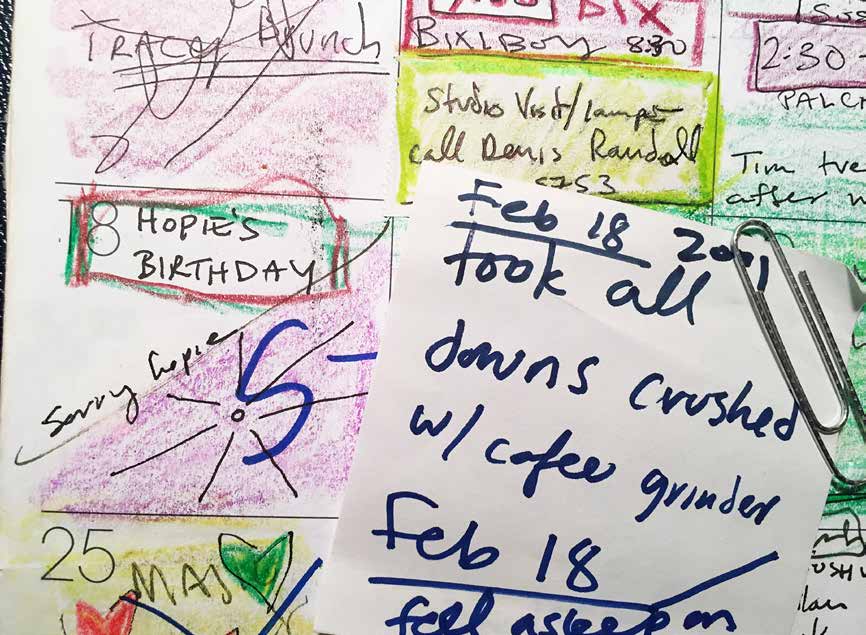 Tracy Brunch
BIX
BIXLBOY 8:30
Studio Visit/lamps
call Denis Randall
5753
2:30 -
PALC
Tim
after
8 HOPIE'S
BIRTHDAY
Sorry hopie
5 -
25 MAS
Feb 18 2001
took all
downs crushed
w/ cofee grinder
Feb 18
fell asleep on